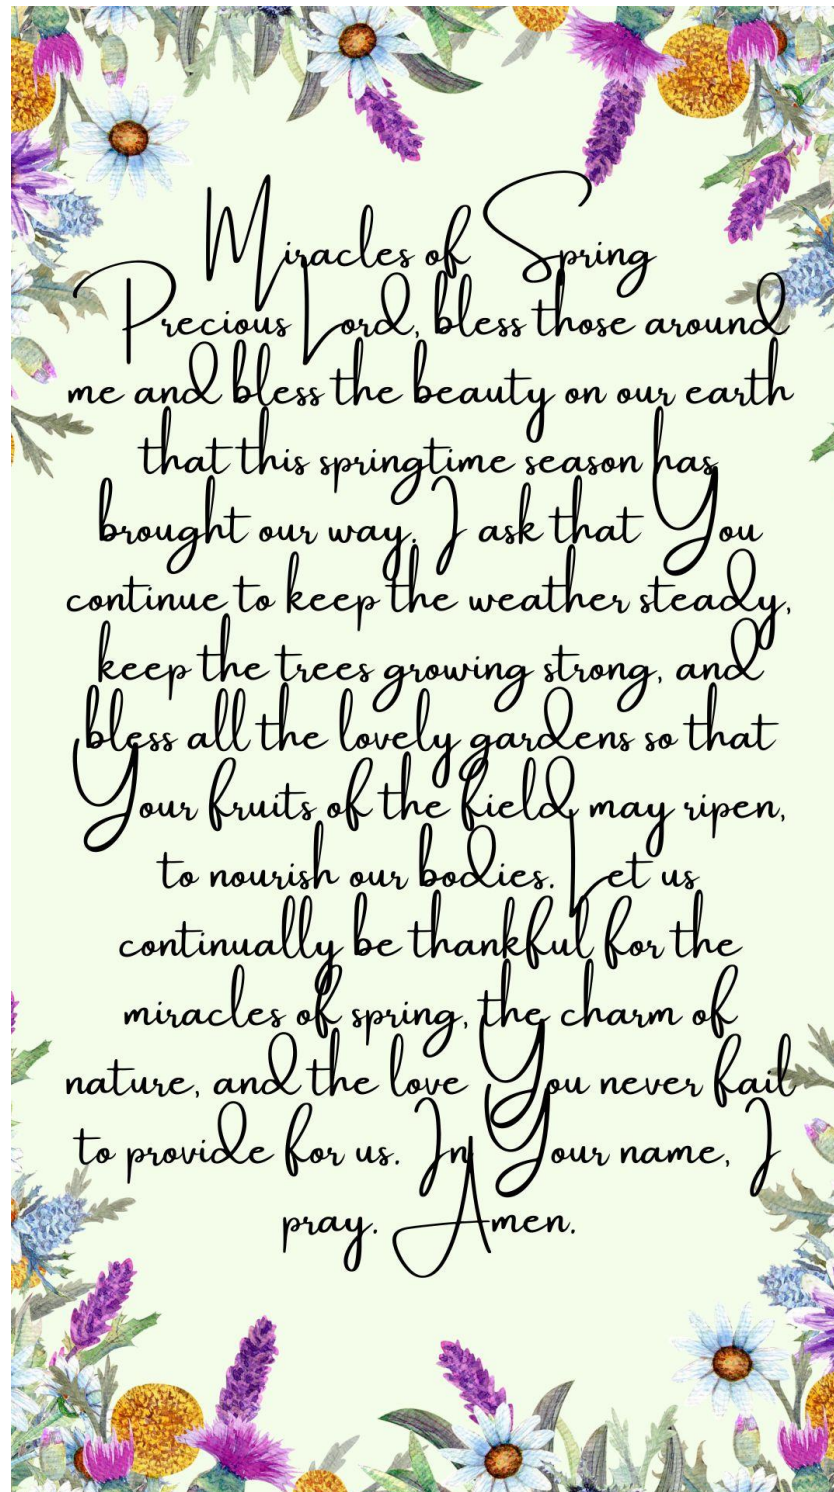 Miracles of Spring
Precious Lord, bless those around
me and bless the beauty on our earth
that this springtime season has
brought our way. I ask that You
continue to keep the weather steady,
keep the trees growing strong, and
bless all the lovely gardens so that
Your fruits of the field, may ripen,
to nourish our bodies. Let us
continually be thankful for the
miracles of spring, the charm of
nature, and the love You never fail
to provide for us. In Your name, I
pray. Amen.